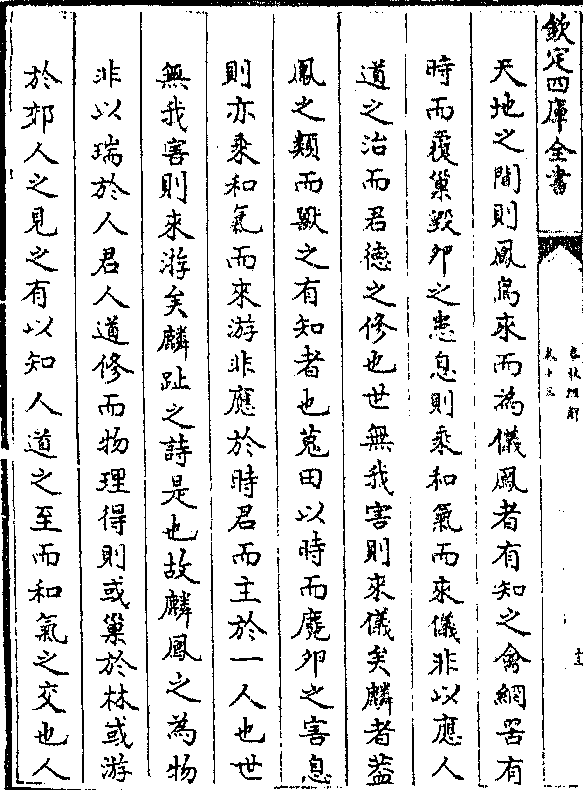 欽定四庫全書
卷十三
天地之間則鳳鳥來而為儀鳳者有知之禽網罟有
時而覆巢毀卵之患息則乘和氣而來儀非以應人
道之治而君德之修也世無我害則來儀矣麟者葢
鳳之類而獸之有知者也蒐田以時而麛卵之害息
則亦乘和氣而來游非應於時君而主於一人也世
無我害則來游矣麟趾之詩是也故麟鳳之為物
非以瑞於人君人道修而物理得則或巢於林或游
於郊人之見之有以知人道之至而和氣之交也人